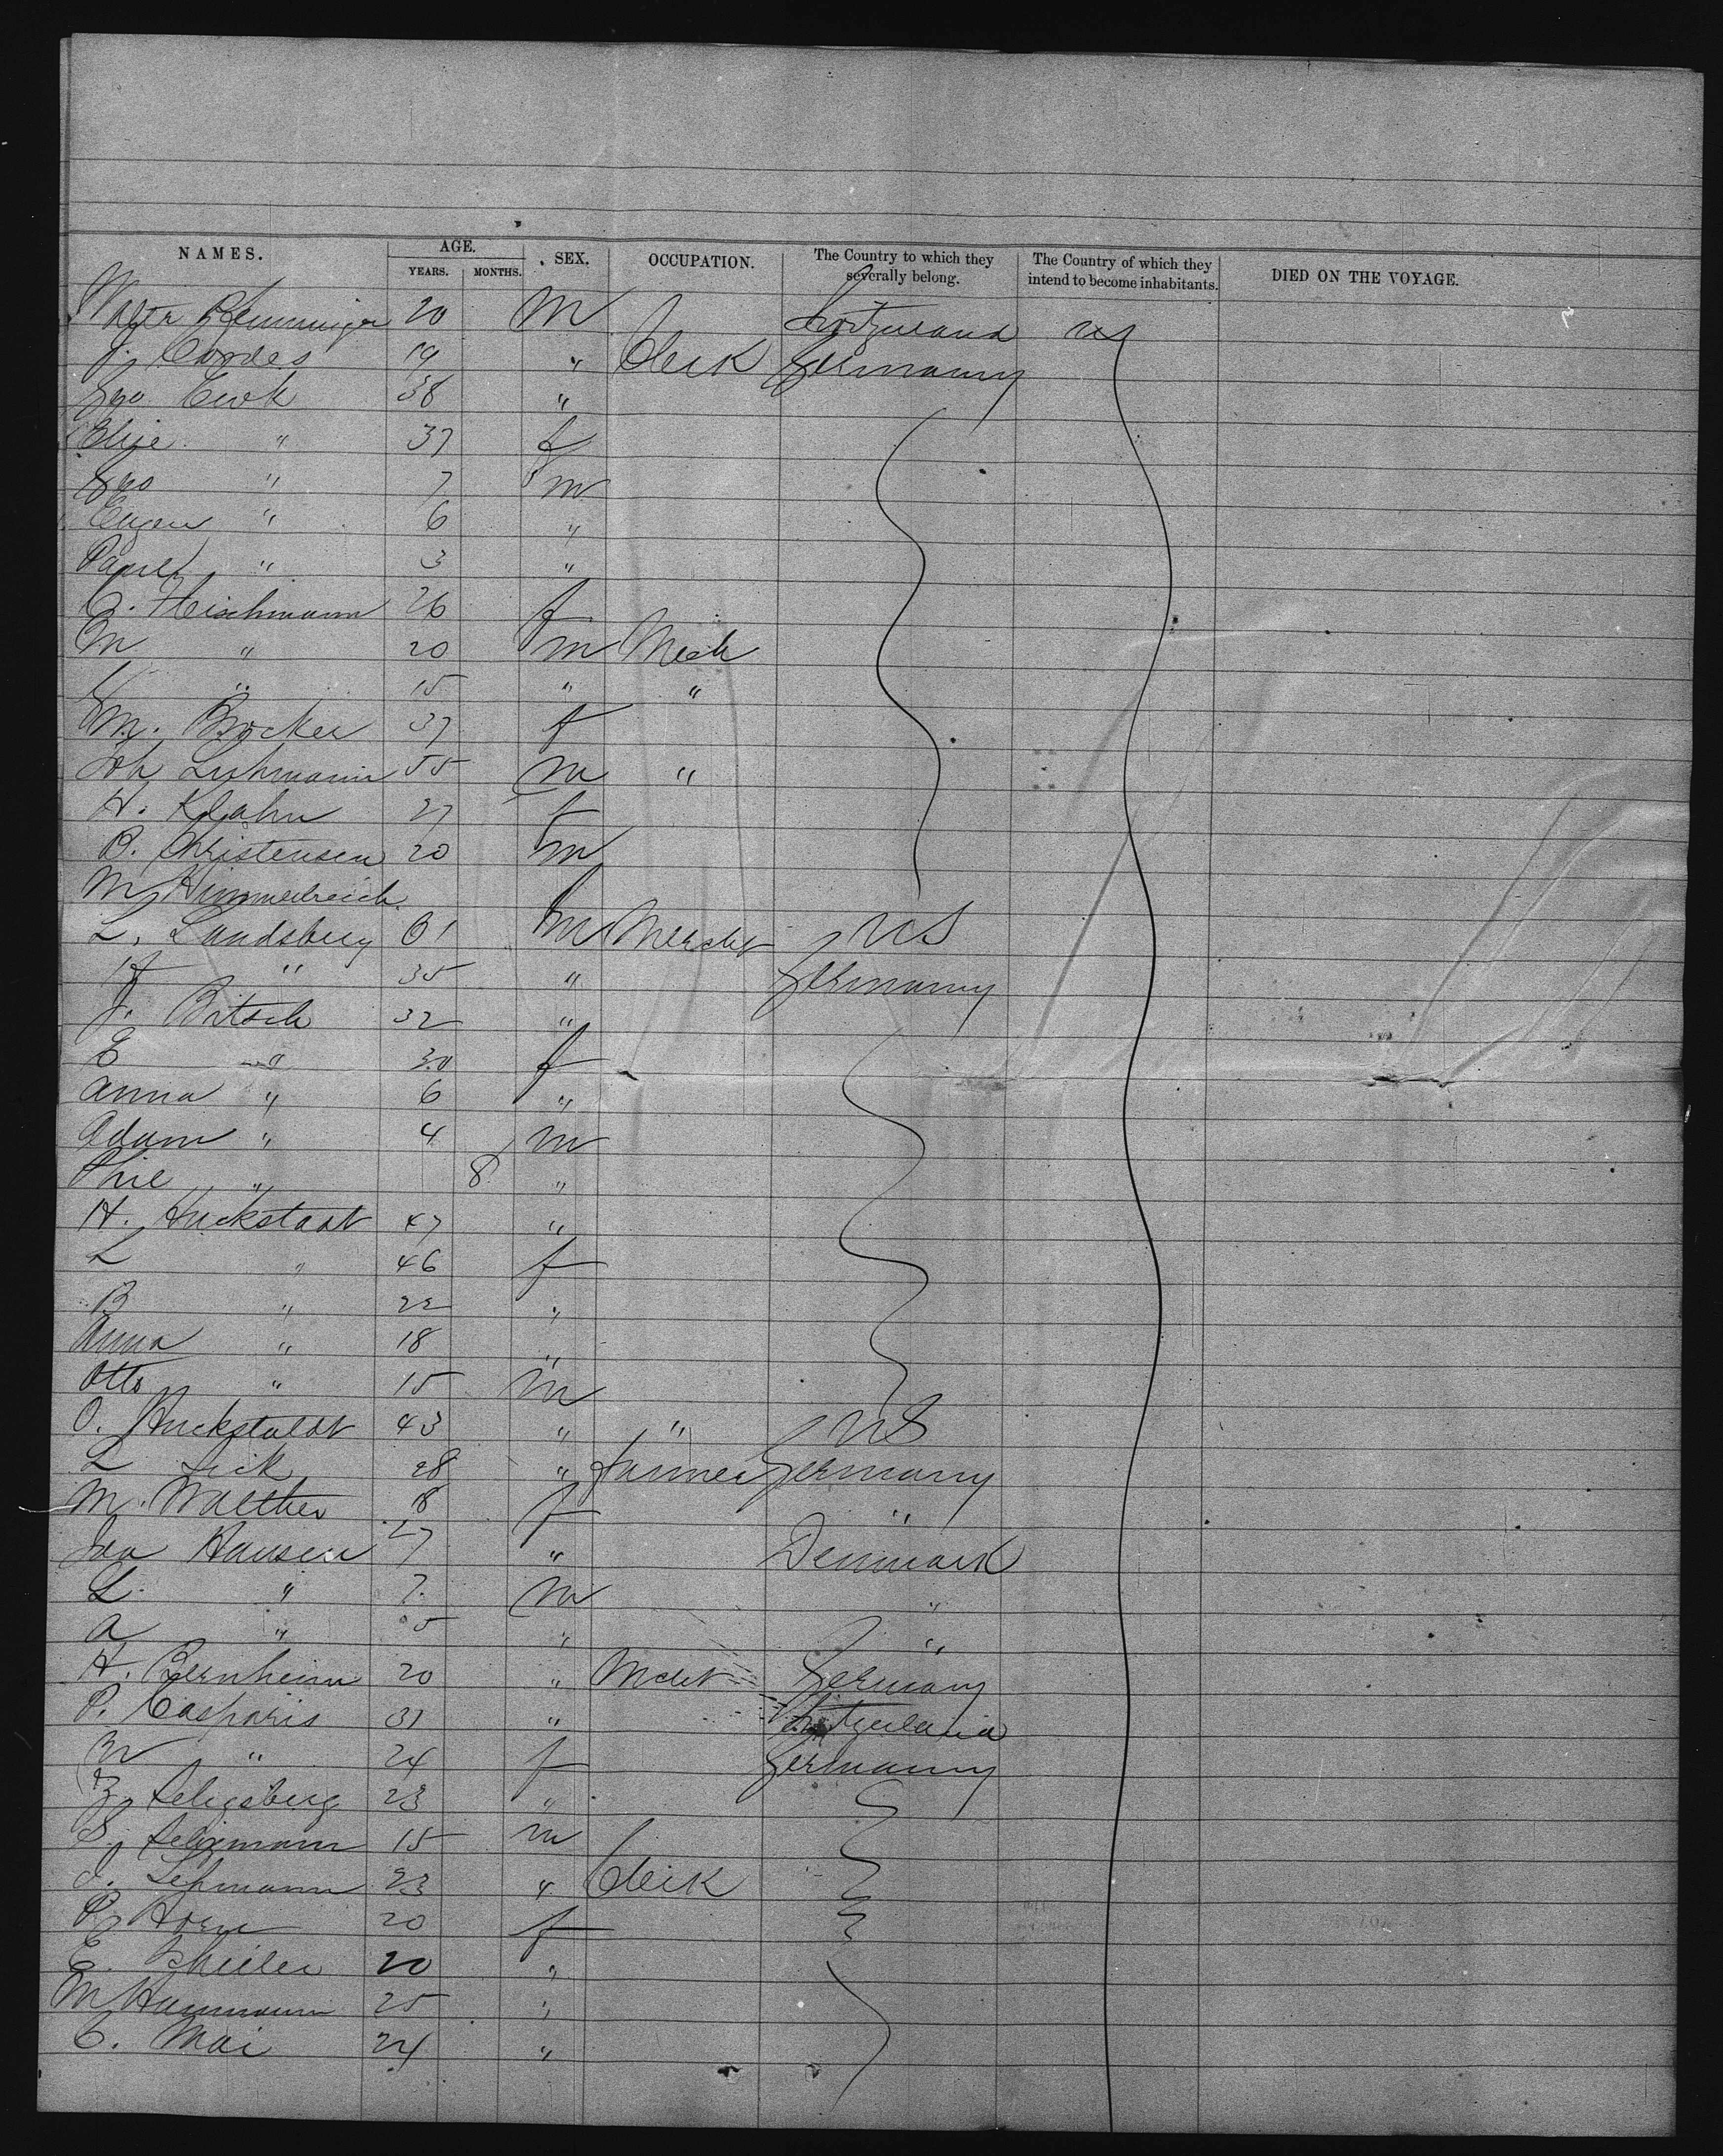 NAMES. AGE. YEARS. MONTHS. SEX. OCCUPATION. The Country to which they severally belong. The Country of which they intend to become inhabitants. DIED ON THE VOYAGE.
Walter 20 M Switzerland US
J. Cordes 19 " Clerk Germany
Geo 38 "
Elise " 37 f
Geo " 7 m
Eugen " 6 "
Paul " 3 "
C. Fleischmann 26 f
M " 20 m Mech
" 15 " "
M. Brocker 37 f
Joh Luhmann 55 m "
H. Klahn 27 f
B. Christensen 20 m
M Himmelreich
L. Landsberg 61 m Mercht US
H " 35 " Germany
J. Bitsch 32 "
E " 30 f
Anna " 6 "
Adam " 4 m
Phil " 8 "
H. Huckstadt 47 "
L " 46 f
B " 22 "
Anna " 18 "
Otto " 15 m
O. Huckstaldt 43 " " US
L Sick 28 " Farmer Germany
M. Walther 18 f "
Hansen 27 " Denmark
L. " 7 m "
A " 5 " "
H. Bernheim 20 " Mcht Germany
P. Casparis 31 " Switzerland
W " 24 f Germany
Z. Seligsberg 23 "
S. Seligmann 15 m
J. Lehmann 23 " Clerk
P. Horn 20 f
E. 20 "
M Hammann 25 "
C. Mai 24 "